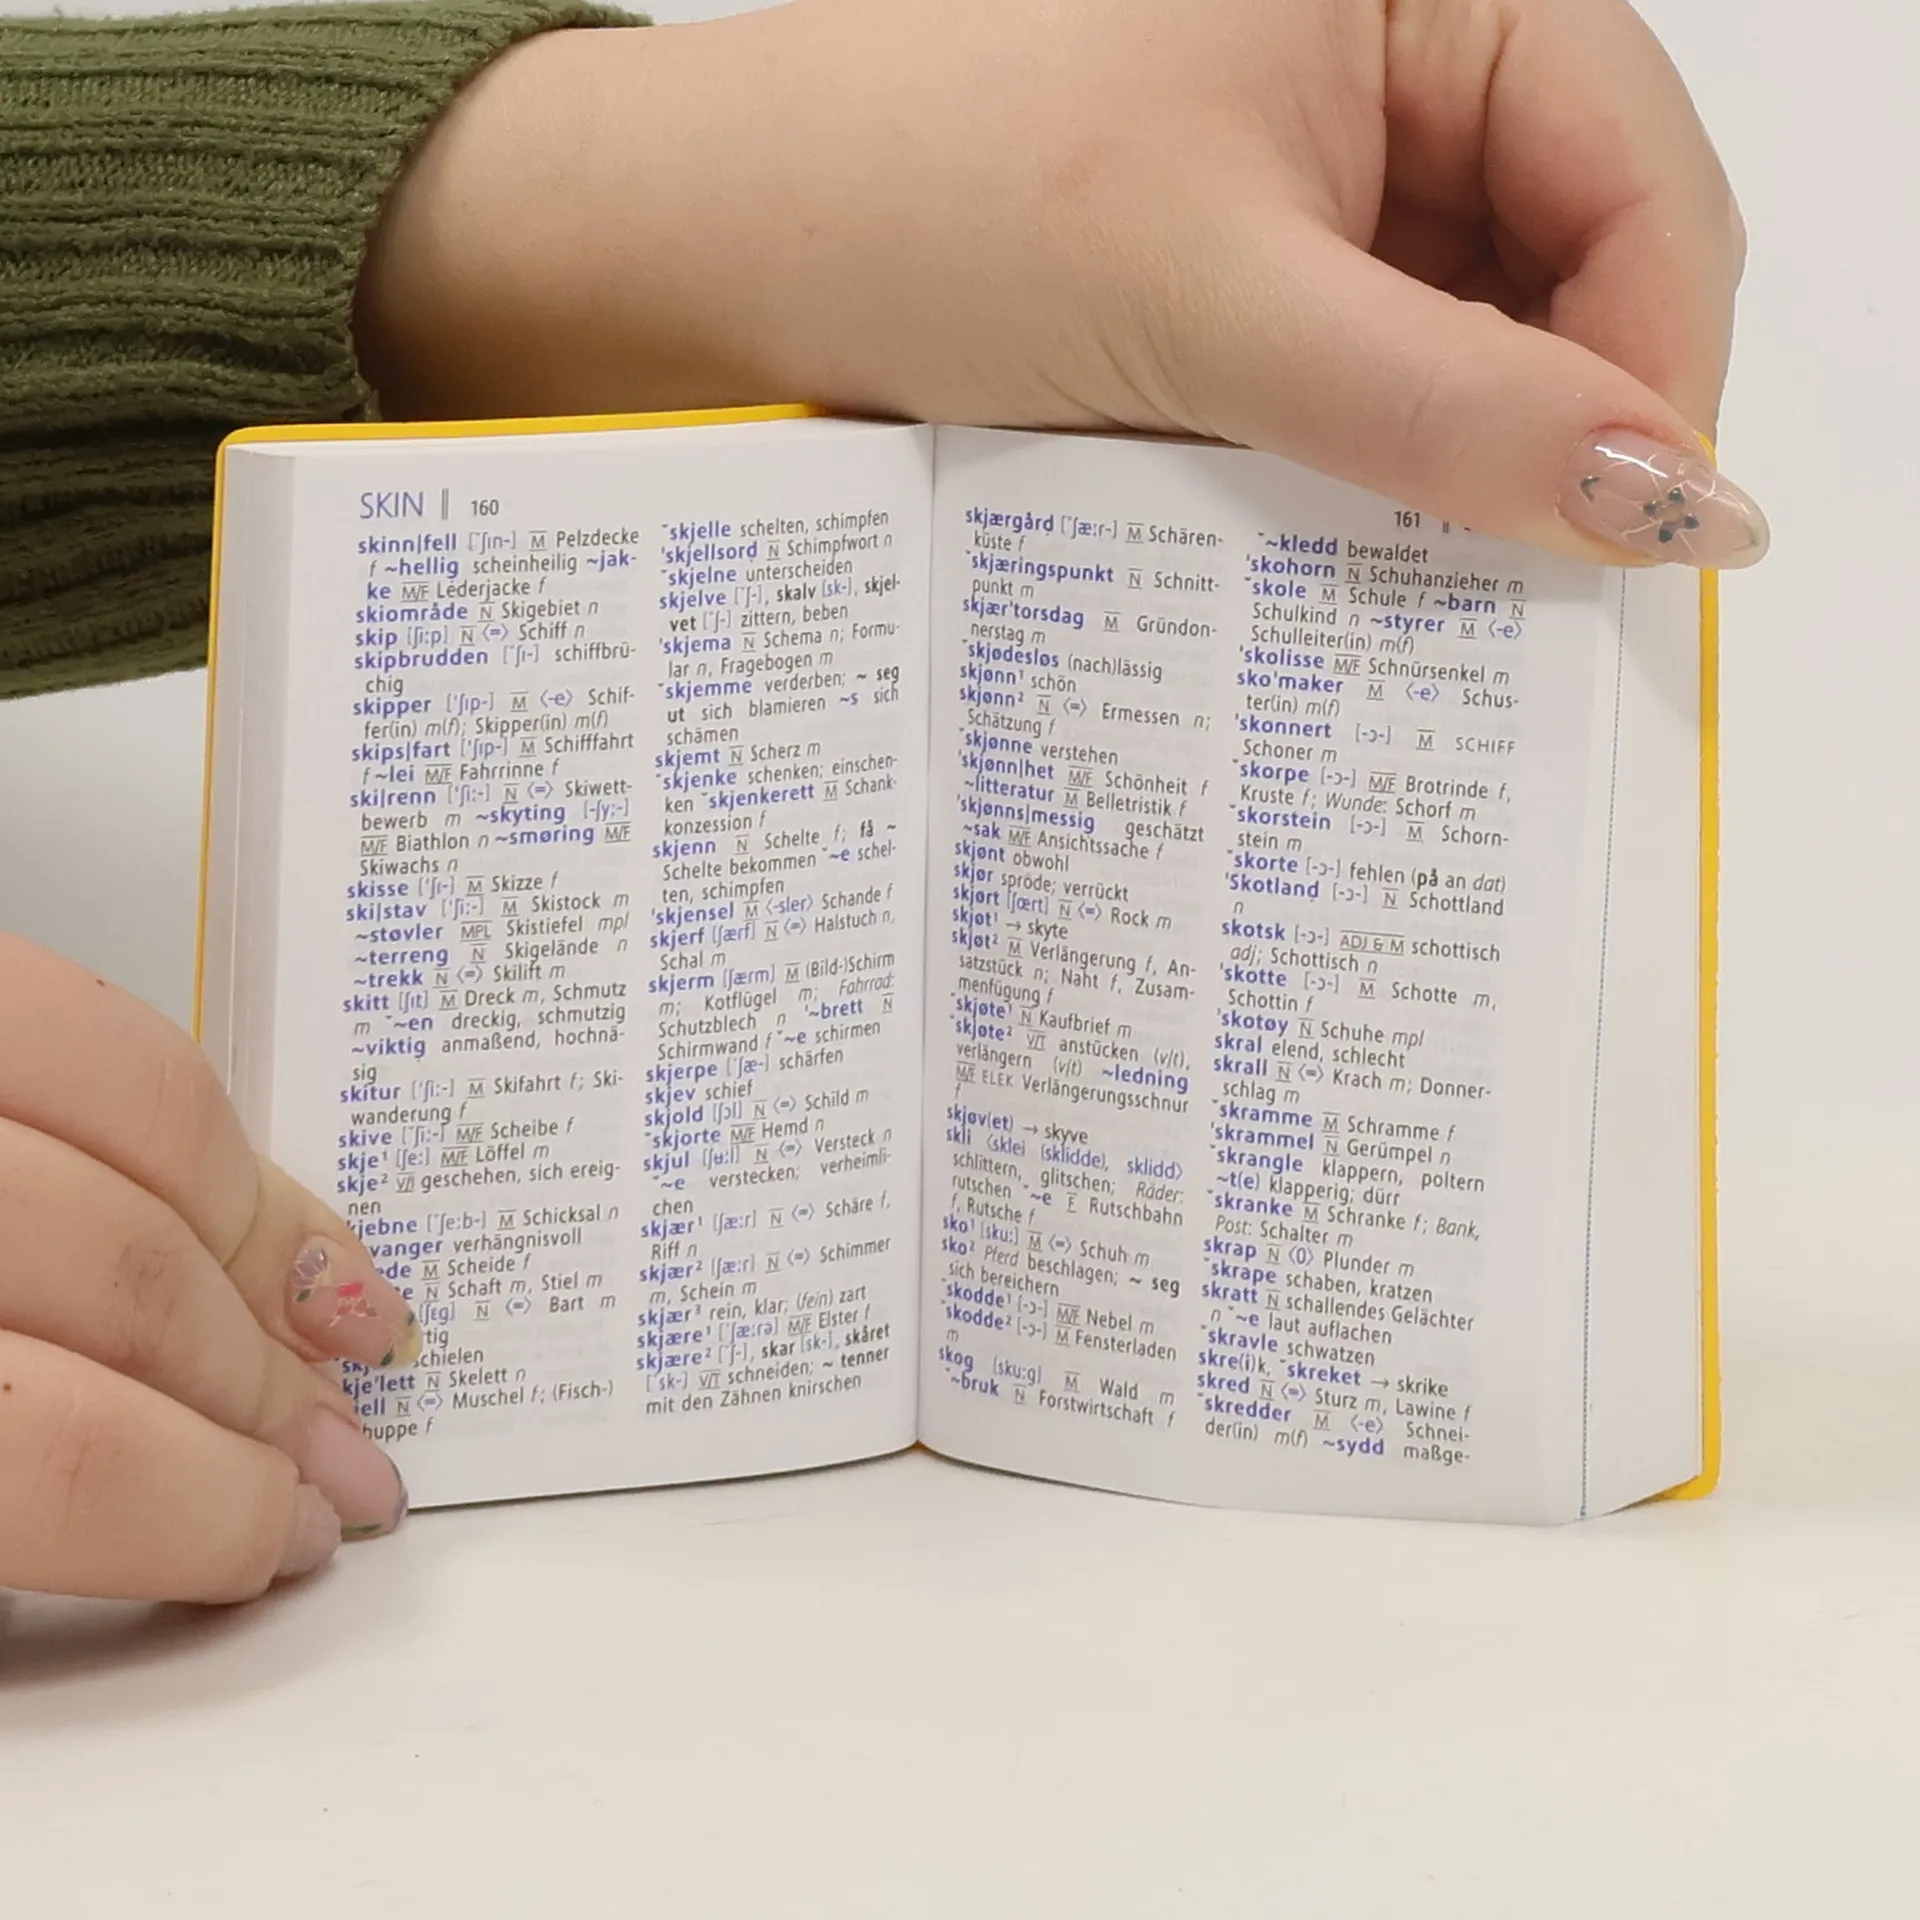 SKIN ‖ 160
skinn|fell [˝ʃɪn-] M Pelzdecke
f ~hellig scheinheilig ~jak-
ke M/F Lederjacke f
skiområde N Skigebiet n
skip [ʃi:p] N ⟨=⟩ Schiff n
skipbrudden [˝ʃɪ-] schiffbrü-
chig
skipper ['ʃɪp-] M ⟨-e⟩ Schif-
fer(in) m(f); Skipper(in) m(f)
skips|fart ['ʃɪp-] M Schifffahrt
f ~lei M/F Fahrrinne f
ski|renn ['ʃi:-] N ⟨=⟩ Skiwett-
bewerb m ~skyting [-ʃy:-]
M/F Biathlon n ~smøring M/F
Skiwachs n
skisse ['ʃɪ-] M Skizze f
ski|stav ['ʃi:-] M Skistock m
~støvler MPL Skistiefel mpl
~terreng N Skigelände n
~trekk N ⟨=⟩ Skilift m
skitt [ʃɪt] M Dreck m, Schmutz
m ˝~en dreckig, schmutzig
~viktig anmaßend, hochnä-
sig
skitur ['ʃi:-] M Skifahrt f; Ski-
wanderung f
skive [˝ʃi:-] M/F Scheibe f
skje¹ [ʃe:] M/F Löffel m
skje² V/I geschehen, sich ereig-
nen
kjebne [˝ʃe:b-] M Schicksal n
vanger verhängnisvoll
ede M Scheide f
e N Schaft m, Stiel m
[ʃɛg] N ⟨=⟩ Bart m
tig
schielen
kje'lett N Skelett n
jell N ⟨=⟩ Muschel f; (Fisch-)
huppe f
˝skjelle schelten, schimpfen
'skjellsord N Schimpfwort n
˝skjelne unterscheiden
skjelve [˝ʃ-], skalv [sk-], skjel-
vet [˝ʃ-] zittern, beben
'skjema N Schema n; Formu-
lar n, Fragebogen m
˝skjemme verderben; ~ seg
ut sich blamieren ~s sich
schämen
skjemt N Scherz m
˝skjenke schenken; einschen-
ken ˝skjenkerett M Schank-
konzession f
skjenn N Schelte f; få ~
Schelte bekommen ˝~e schel-
ten, schimpfen
'skjensel M ⟨-sler⟩ Schande f
skjerf [ʃærf] N ⟨=⟩ Halstuch n,
Schal m
skjerm [ʃærm] M (Bild-)Schirm
m; Kotflügel m; Fahrrad:
Schutzblech n '~brett N
Schirmwand f ˝~e schirmen
skjerpe [˝ʃæ-] schärfen
skjev schief
skjold [ʃɔl] N ⟨=⟩ Schild m
˝skjorte M/F Hemd n
skjul [ʃʉ:l] N ⟨=⟩ Versteck n
˝~e verstecken; verheimli-
chen
skjær¹ [ʃæ:r] N ⟨=⟩ Schäre f,
Riff n
skjær² [ʃæ:r] N ⟨=⟩ Schimmer
m, Schein m
skjær³ rein, klar; (fein) zart
skjære¹ [˝ʃæ:rə] M/F Elster f
skjære² [˝ʃ-], skar [sk-], skåret
[˝sk-] V/T schneiden; ~ tenner
mit den Zähnen knirschen
161 ‖
skjærgård [˝ʃæ:r-] M Schären-
küste f
˝skjæringspunkt N Schnitt-
punkt m
skjær'torsdag M Gründon-
nerstag m
˝skjødesløs (nach)lässig
skjønn¹ schön
skjønn² N ⟨=⟩ Ermessen n;
Schätzung f
˝skjønne verstehen
'skjønn|het M/F Schönheit f
~litteratur M Belletristik f
'skjønns|messig geschätzt
~sak M/F Ansichtssache f
skjønt obwohl
skjør spröde; verrückt
skjørt [ʃœrt] N ⟨=⟩ Rock m
skjøt¹ → skyte
skjøt² M Verlängerung f, An-
satzstück n; Naht f, Zusam-
menfügung f
˝skjøte¹ N Kaufbrief m
˝skjøte² V/T anstücken (v/t),
verlängern (v/t) ~ledning
M/F ELEK Verlängerungsschnur
f
skjøv(et) → skyve
skli ⟨sklei (sklidde), sklidd⟩
schlittern, glitschen; Räder:
rutschen ˝~e F Rutschbahn
f, Rutsche f
sko¹ [sku:] M ⟨=⟩ Schuh m
sko² Pferd beschlagen; ~ seg
sich bereichern
˝skodde¹ [-ɔ-] M/F Nebel m
˝skodde² [-ɔ-] M Fensterladen
m
skog [sku:g] M Wald m
˝~bruk N Forstwirtschaft f
˝~kledd bewaldet
'skohorn N Schuhanzieher m
˝skole M Schule f ~barn N
Schulkind n ~styrer M ⟨-e⟩
Schulleiter(in) m(f)
'skolisse M/F Schnürsenkel m
sko'maker M ⟨-e⟩ Schus-
ter(in) m(f)
'skonnert [-ɔ-] M SCHIFF
Schoner m
˝skorpe [-ɔ-] M/F Brotrinde f,
Kruste f; Wunde: Schorf m
˝skorstein [-ɔ-] M Schorn-
stein m
˝skorte [-ɔ-] fehlen (på an dat)
'Skotland [-ɔ-] N Schottland
n
skotsk [-ɔ-] ADJ & M schottisch
adj; Schottisch n
˝skotte [-ɔ-] M Schotte m,
Schottin f
'skotøy N Schuhe mpl
skral elend, schlecht
skrall N ⟨=⟩ Krach m; Donner-
schlag m
˝skramme M Schramme f
'skrammel N Gerümpel n
˝skrangle klappern, poltern
~t(e) klapperig; dürr
˝skranke M Schranke f; Bank,
Post: Schalter m
skrap N ⟨0⟩ Plunder m
˝skrape schaben, kratzen
skratt N schallendes Gelächter
n ˝~e laut auflachen
˝skravle schwatzen
skre(i)k, ˝skreket → skrike
skred N ⟨=⟩ Sturz m, Lawine f
˝skredder M ⟨-e⟩ Schnei-
der(in) m(f) ~sydd maßge-